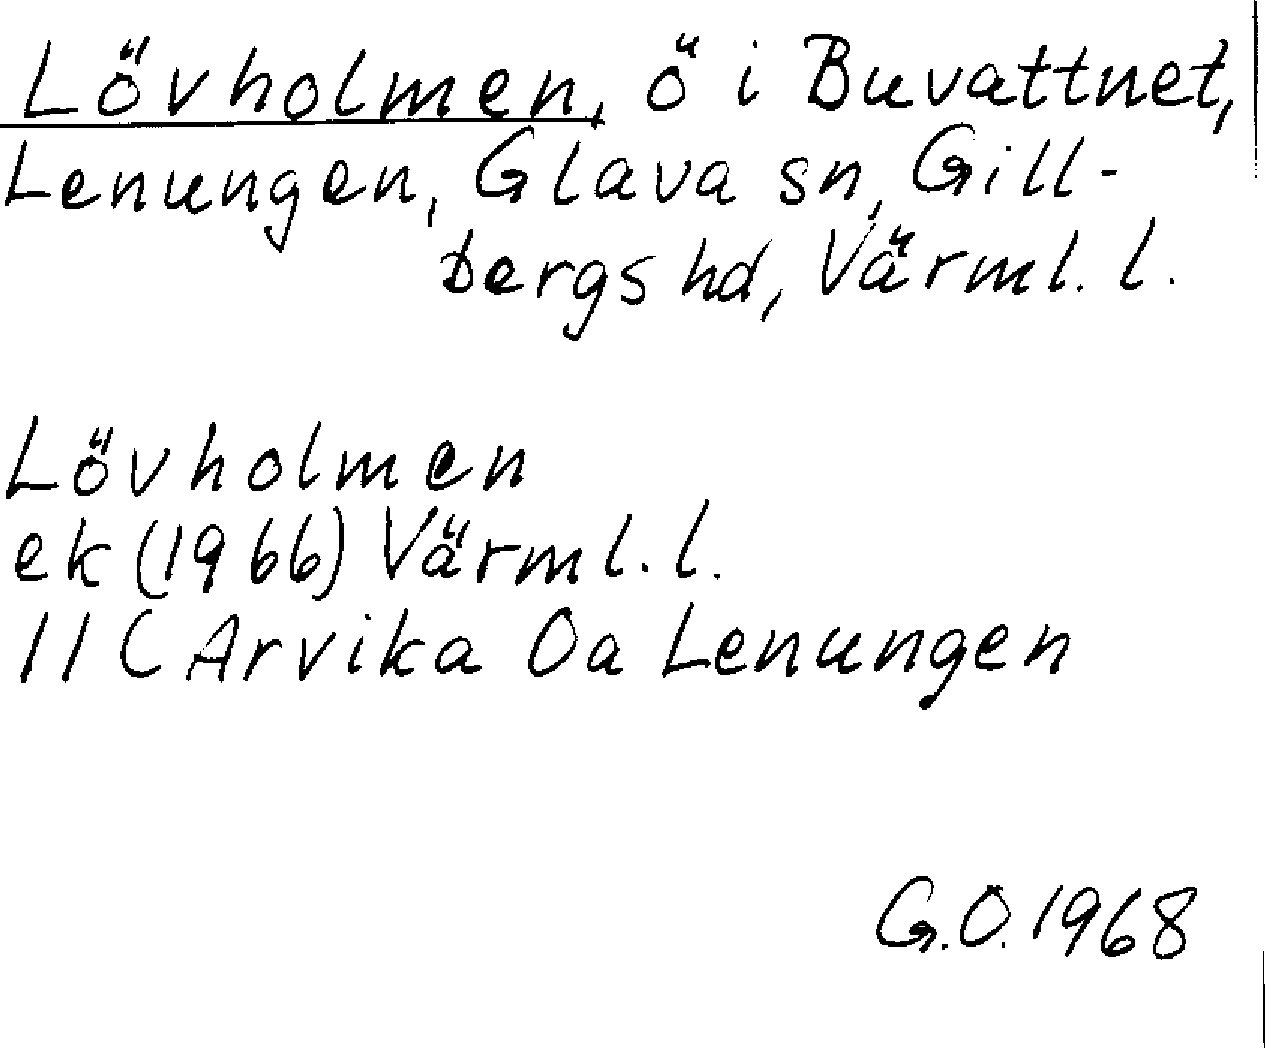 Lövholmen, ö i Buvattnet,
Lenungen, Glava sn, Gill-
bergs hd, Värml. l.
Lövholmen
ek (1966) Värml. l.
11C Arvika Oa Lenungen
G.O. 1968